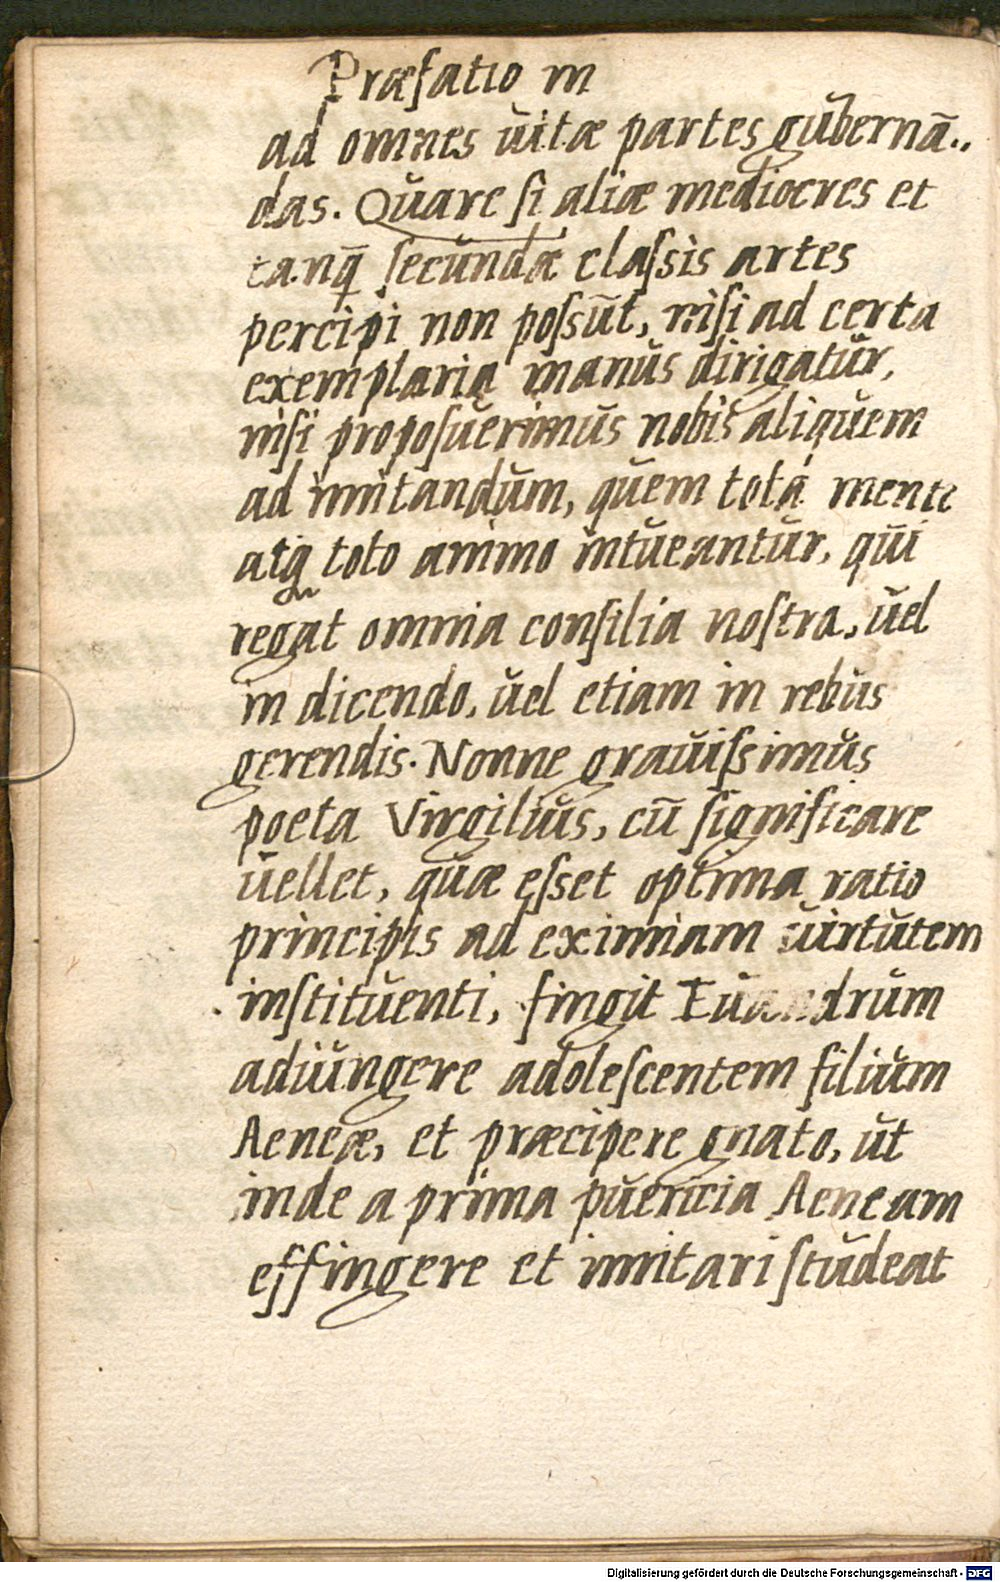 Præfatio in
ad omnes uitæ partes gubernā..
das. Quare ſi aliæ mediocres et
tanq̄ ſecundæ claſsis artes
percipi non poſsūt, niſi ad certa
exemplaria manus dirigatur,
niſi propoſuerimus nobis aliquem
ad imitandum, quem tota mente
atq; toto animo intueantur, qui
regat omnia conſilia noſtra, uel
in dicendo, uel etiam in rebus
gerendis. Nonne grauiſsimus
poeta Virgilius, cū ſignificare
uellet, quæ eſset optima ratio
principis ad eximiam uirtutem
inſtituenti, fingit Euandrum
adiungere adoleſcentem filium
Aeneæ, et præcipere gnato, ut
inde a prima puericia Aeneam
effingere et imitari ſtudeat
Digitalisierung gefördert durch die Deutsche Forschungsgemeinschaft - DFG